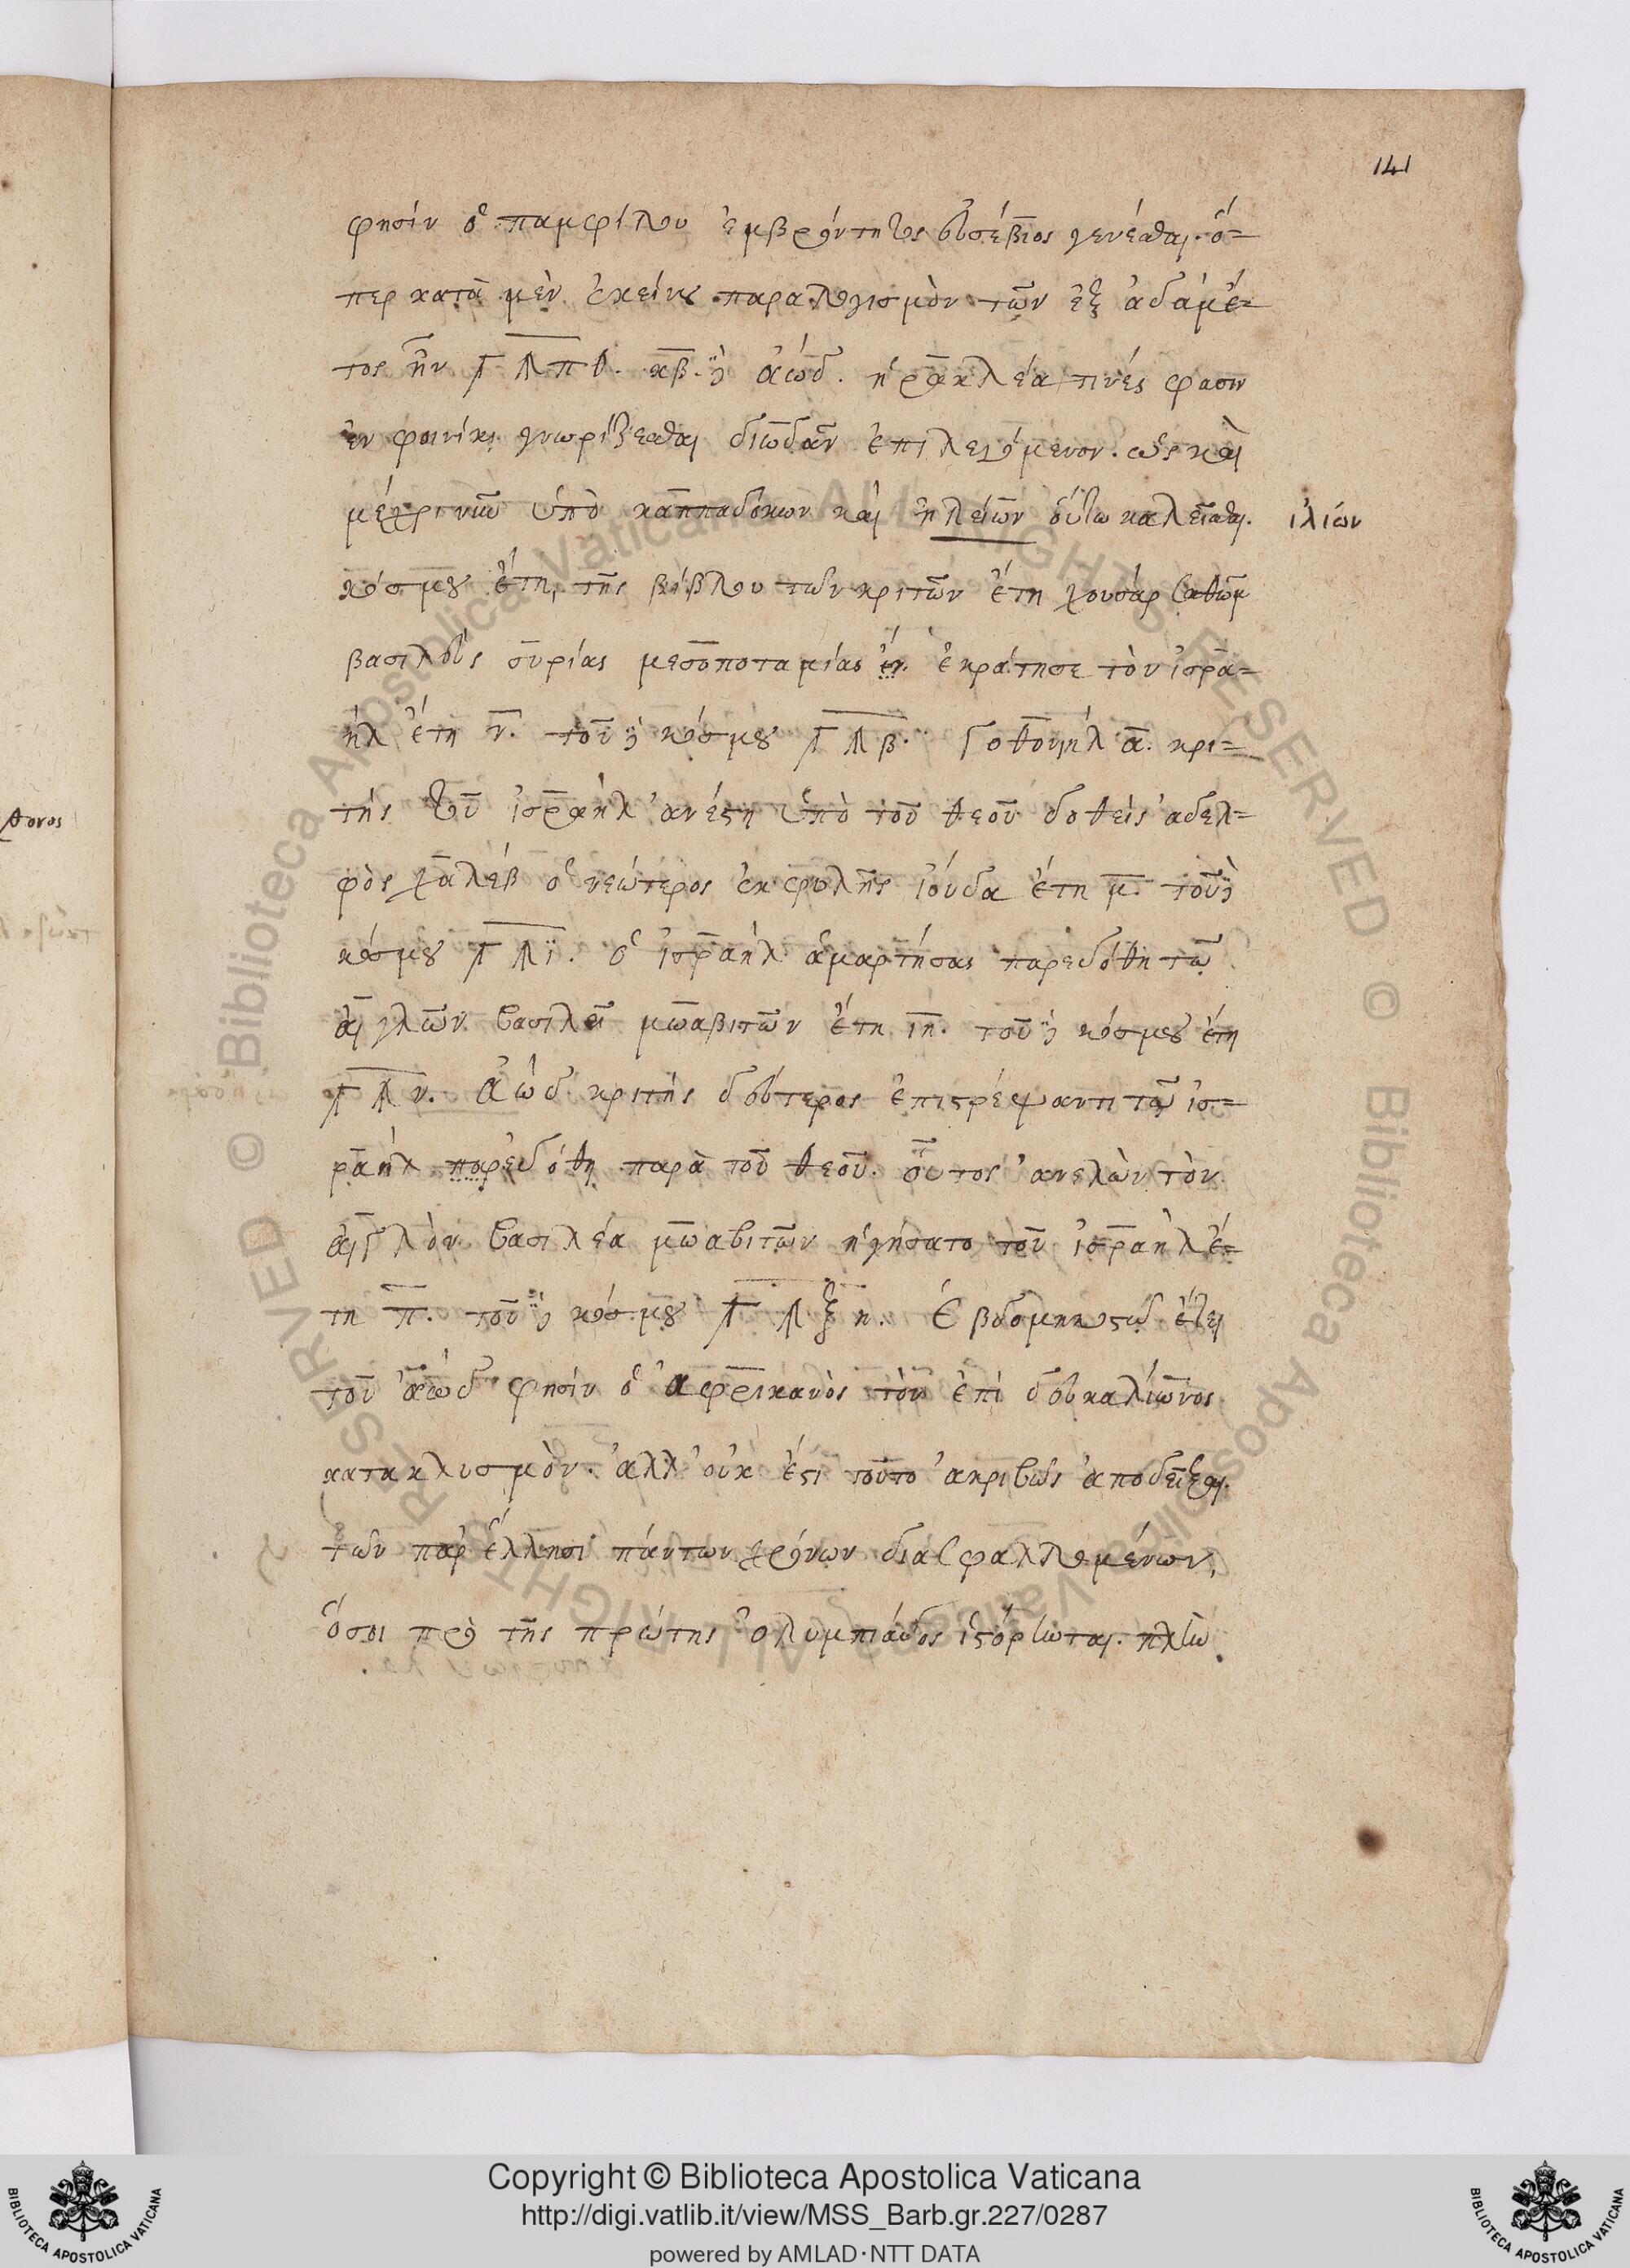 141
φησίν ὁ παμφίλου ἐμβρόντητος εὐσέβιος γενέσθαι. ὅ=
περ κατὰ μὲν ἐκείνου παραλογισμὸν τῶν ἐξ ἀδὰμ ἔ=
τος ἦν
ἀώδ. ἡρακλέα τινές φασιν
ἐν φοινίκῃ γνωρίζεσθαι διωδᾶν ἐπιλεγόμενον. ὡς καὶ
μέχρι νῦν ὑπὸ καππαδόκων καὶ ἠλείων οὕτω καλεῖσθαι.
ἰλιών
κόσμου ἔτη, τῆς βίβλου τῶν κριτῶν ἔτη χουσάρ σαθὼμ
βασιλεὺς συρίας μεσοποταμίας ἐν. ἐκράτησε τὸν ἰσρα=
ὴλ ἔτη η. τοῦ δὲ κόσμου Γοθονιὴλ α. κρι=
τὴς τοῦ ἰσραὴλ ἀνέστη ὑπὸ τοῦ θεοῦ δοθεὶς ἀδελ=
φὸς χαλὲβ ὁ νεώτερος ἐκ φυλῆς ἰούδα ἔτη μ. τοῦ δὲ
κόσμου ὁ ἰσραὴλ ἁμαρτήσας παρεδόθη τῷ
αἰγλὼν βασιλεῖ μωαβιτῶν ἔτη ιη. τοῦ δὲ κόσμου ἔτη
ἀὼδ κριτὴς δεύτερος ἐπιστρέψαντι τῷ ἰσ=
ραὴλ παρεδόθη παρὰ τοῦ θεοῦ. οὗτος ἀνελὼν τὸν
αἰγλὸν βασιλέα μωαβιτῶν ἡγήσατο τοῦ ἰσραὴλ ἔ=
τη π. τοῦ δὲ κόσμου Ἑβδομηκοστῷ ἔτει
τοῦ ἀὼδ φησὶν ὁ ἀφρικανὸς τὸν ἐπὶ δευκαλίωνος
κατακλυσμὸν. ἀλλ' οὐκ ἔστι τοῦτο ἀκριβῶς ἀποδεῖξαι.
τῶν παρ' ἕλλησι πάντων χρόνων διασφαλλομένων,
ὅσοι πρὸ τῆς πρώτης ὀλυμπιάδος ἱστόρηωται.
θονος
Copyright © Biblioteca Apostolica Vaticana
http://digi.vatlib.it/view/MSS_Barb.gr.227/0287
powered by AMLAD·NTT DATA
BIBLIOTECA APOSTOLICA VATICANA
BIBLIOTECA APOSTOLICA VATICANA
© Biblioteca Apostolica Vaticana ALL RIGHTS RESERVED
© Biblioteca Apostolica Vaticana ALL RIGHTS RESERVED